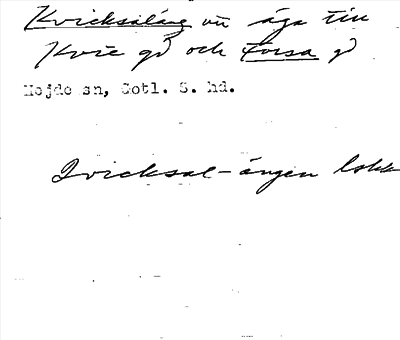 Kvicksaläng vn äga till
Kvie gd och Forsa gd
Hejde sn, Gotl. S. hd.
Qvicksal-ängen lokk